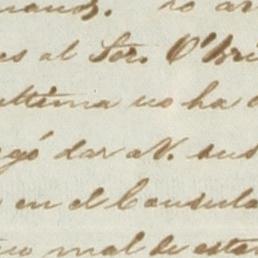 es al Sor. O'Bri
ultima no ha
gó dar a V. sus
en el Consula
mal de esta